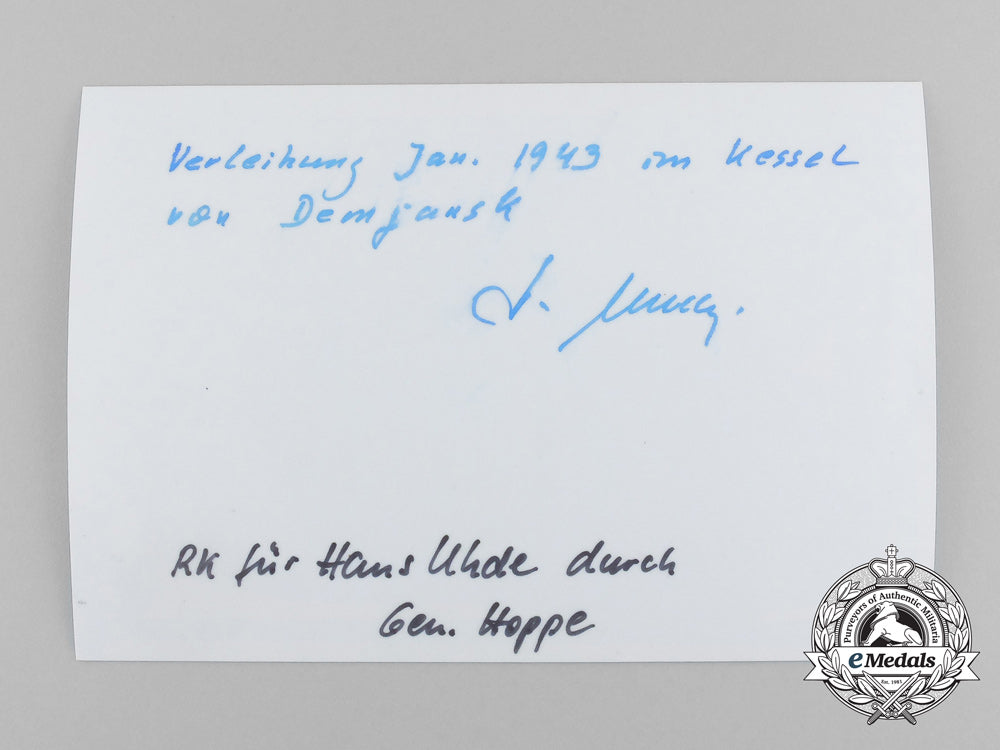 Verleihung Jan. 1943 im Kessel
von Demjansk
RK für Hans Uhde durch
Gen. Hoppe
Purveyors of Authentic Militaria
eMedals
Est. 1981